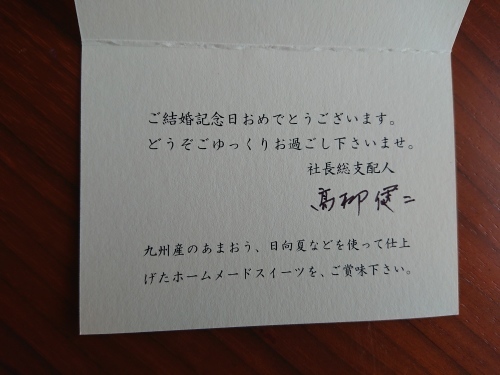 ご結婚記念日おめでとうございます。
どうぞごゆっくりお過ごし下さいませ。
社長総支配人
髙柳健二
九州産のあまおう、日向夏などを使って仕上
げたホームメードスイーツを、ご賞味下さい。